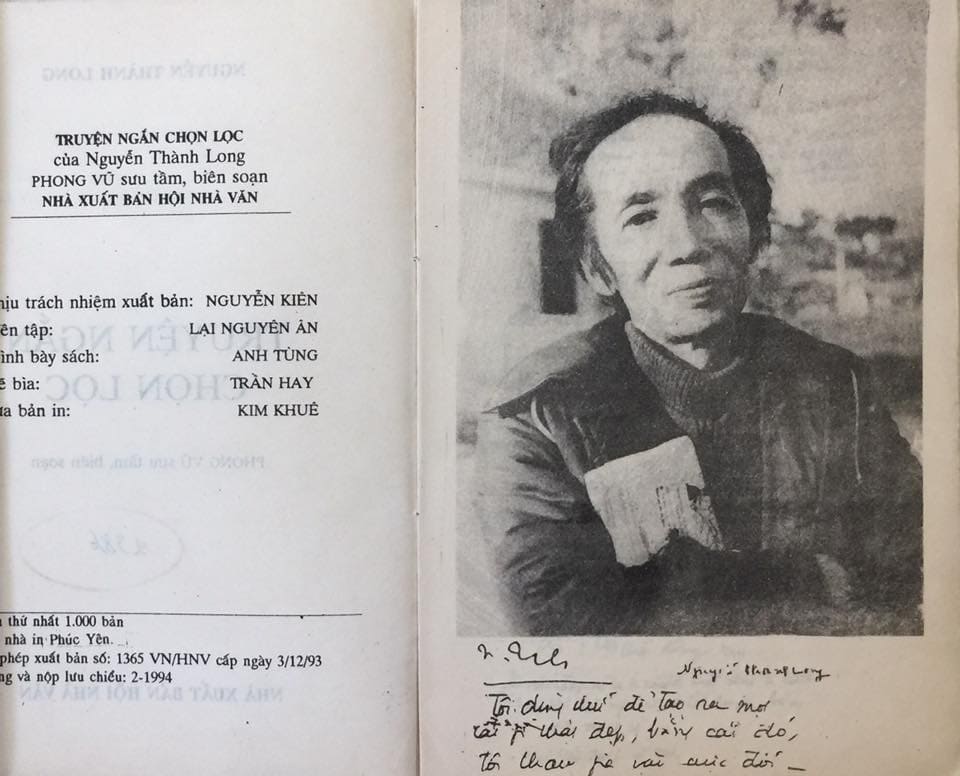 TRUYỆN NGẮN CHỌN LỌC
của Nguyễn Thành Long
PHONG VŨ sưu tầm, biên soạn
NHÀ XUẤT BẢN HỘI NHÀ VĂN
hịu trách nhiệm xuất bản: NGUYỄN KIÊN
ên tập: LẠI NGUYÊN ÂN
ình bày sách: ANH TÙNG
ẽ bìa: TRẦN HAY
ửa bản in: KIM KHUÊ
thứ nhất 1.000 bản
nhà in Phúc Yên.
phép xuất bản số: 1365 VN/HNV cấp ngày 3/12/93
ng và nộp lưu chiểu: 2-1994
Nguyễn Thành Long
Tôi dùng chữ để tạo ra một
cái gì thật đẹp, bằng cái đó,
tôi tham gia vào cuộc đời –